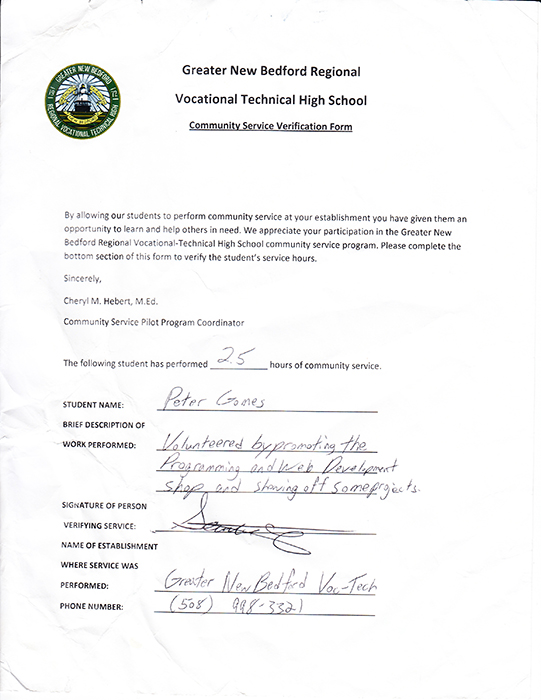 GREATER NEW BEDFORD
REGIONAL VOCATIONAL TECHNICAL HIGH
Greater New Bedford Regional
Vocational Technical High School
Community Service Verification Form
By allowing our students to perform community service at your establishment you have given them an
opportunity to learn and help others in need. We appreciate your participation in the Greater New
Bedford Regional Vocational-Technical High School community service program. Please complete the
bottom section of this form to verify the student's service hours.
Sincerely,
Cheryl M. Hebert, M.Ed.
Community Service Pilot Program Coordinator
The following student has performed 2.5 hours of community service.
STUDENT NAME: Peter Gomes
BRIEF DESCRIPTION OF
WORK PERFORMED: Volunteered by promoting the
Programming and Web Development
shop and showing off some projects.
SIGNATURE OF PERSON
VERIFYING SERVICE:
NAME OF ESTABLISHMENT
WHERE SERVICE WAS
PERFORMED: Greater New Bedford Voc-Tech
PHONE NUMBER: (508) 998-3321